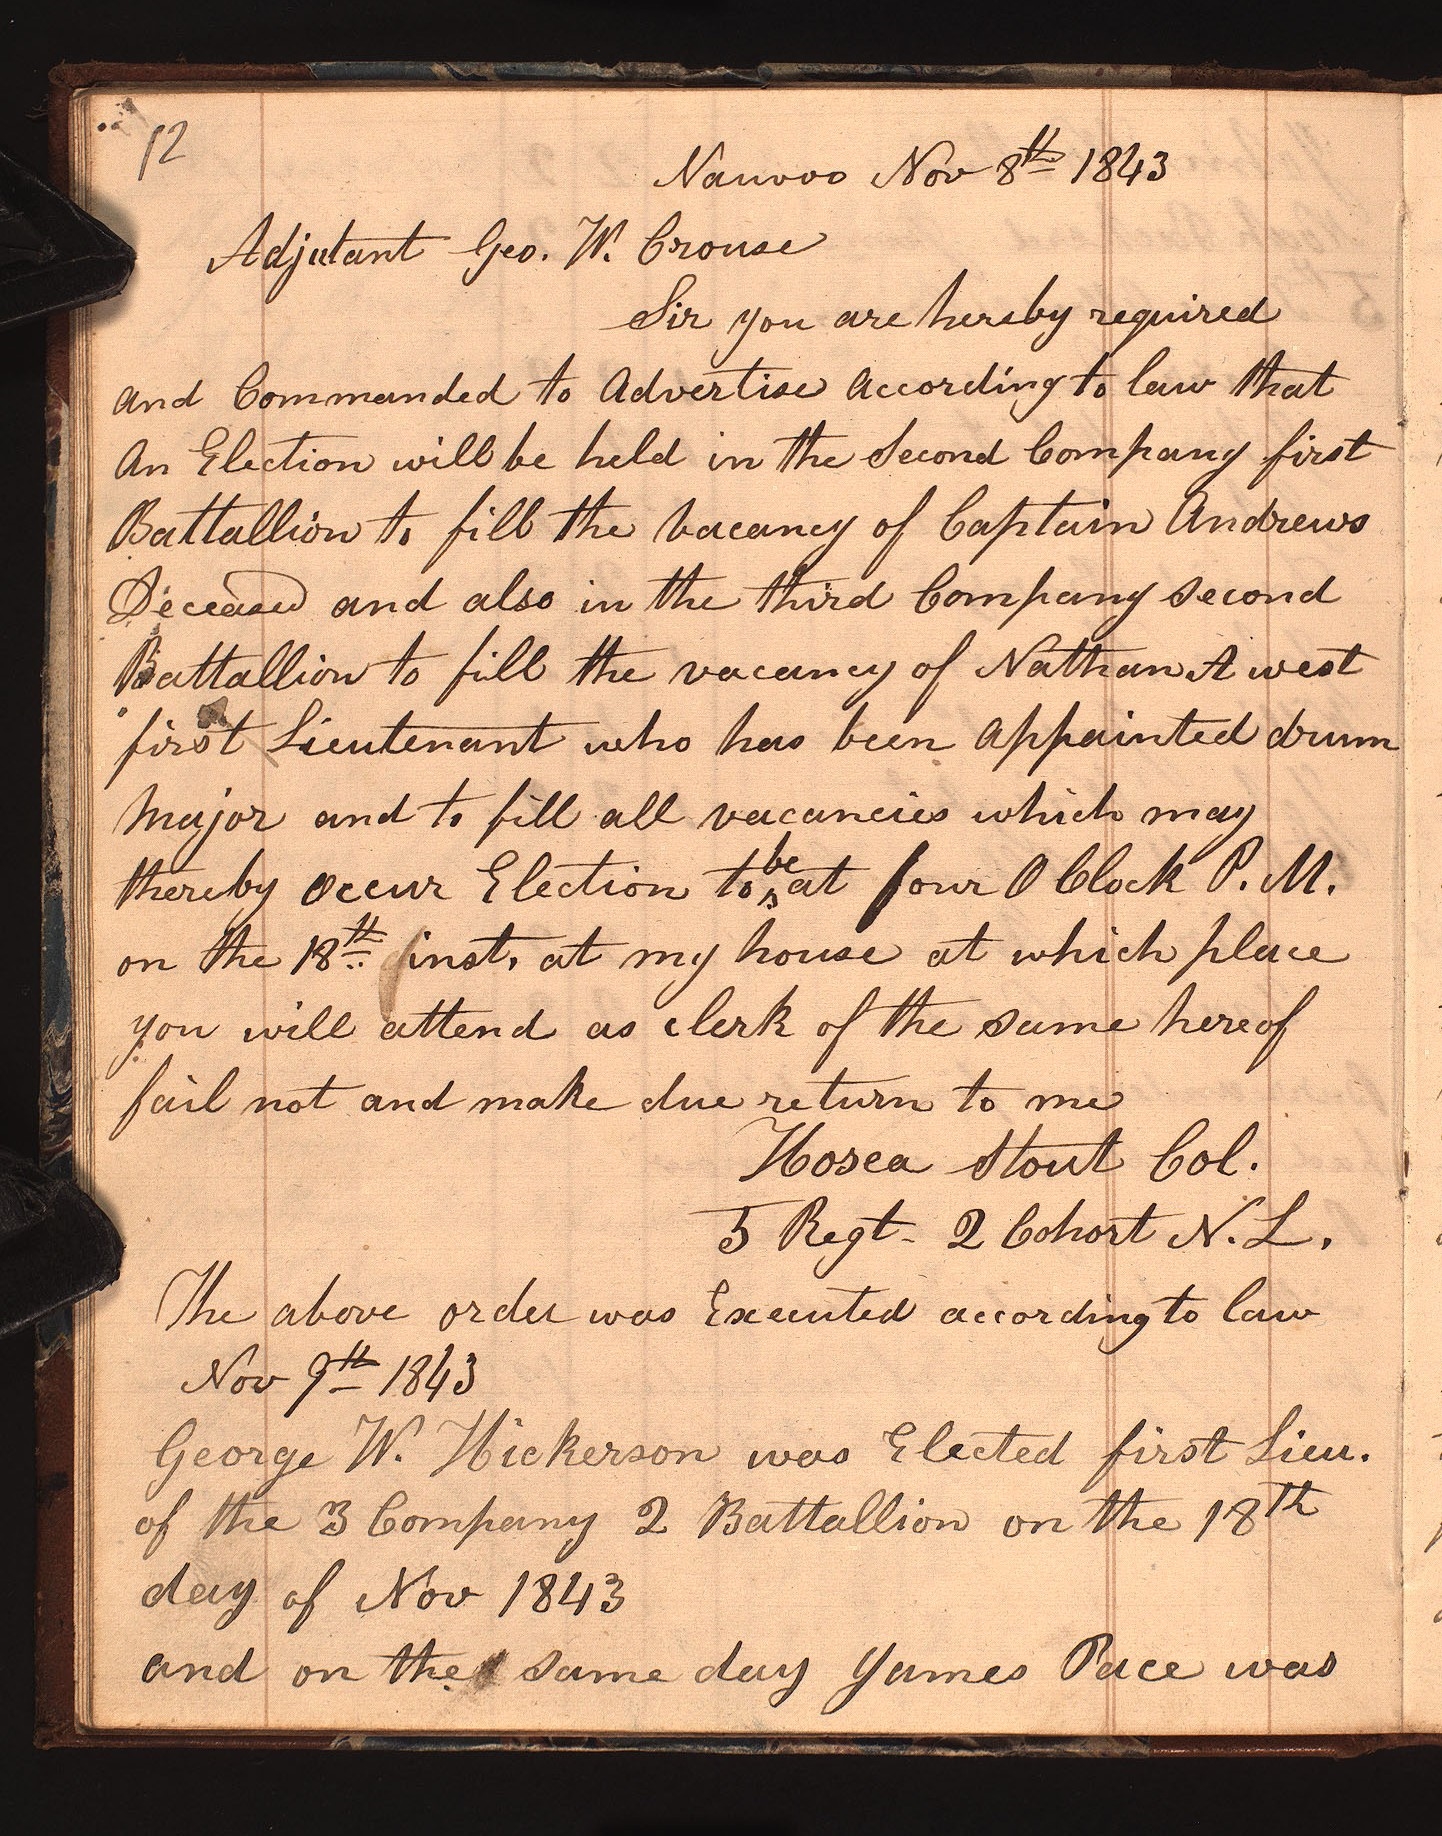 12
Nauvoo Nov 8th 1843
Adjutant Geo. W. Crouse
Sir you are hereby required
and Commanded to Advertise According to law that
An Election will be held in the Second Company first
Battallion to fill the vacancy of Captain Andrews
Deceased and also in the third Company second
Battallion to fill the vacancy of Nathan A west
first Lieutenant who has been Appointed drum
Major and to fill all vacancies which may
thereby occur Election to be at four O Clock P. M.
on the 18th inst. at my house at which place
you will attend as clerk of the same hereof
fail not and make due return to me
Hosea Stout Col.
5 Regt - 2 Cohort N. L.
The above order was Executed according to law
Nov 9th 1843
George W. Hickerson was Elected first Lieu.
of the 3 Company 2 Battallion on the 18th
day of Nov 1843
and on the same day James Pace was